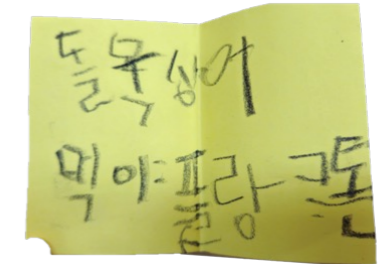 돌묵상어
먹이: 플랑크톤